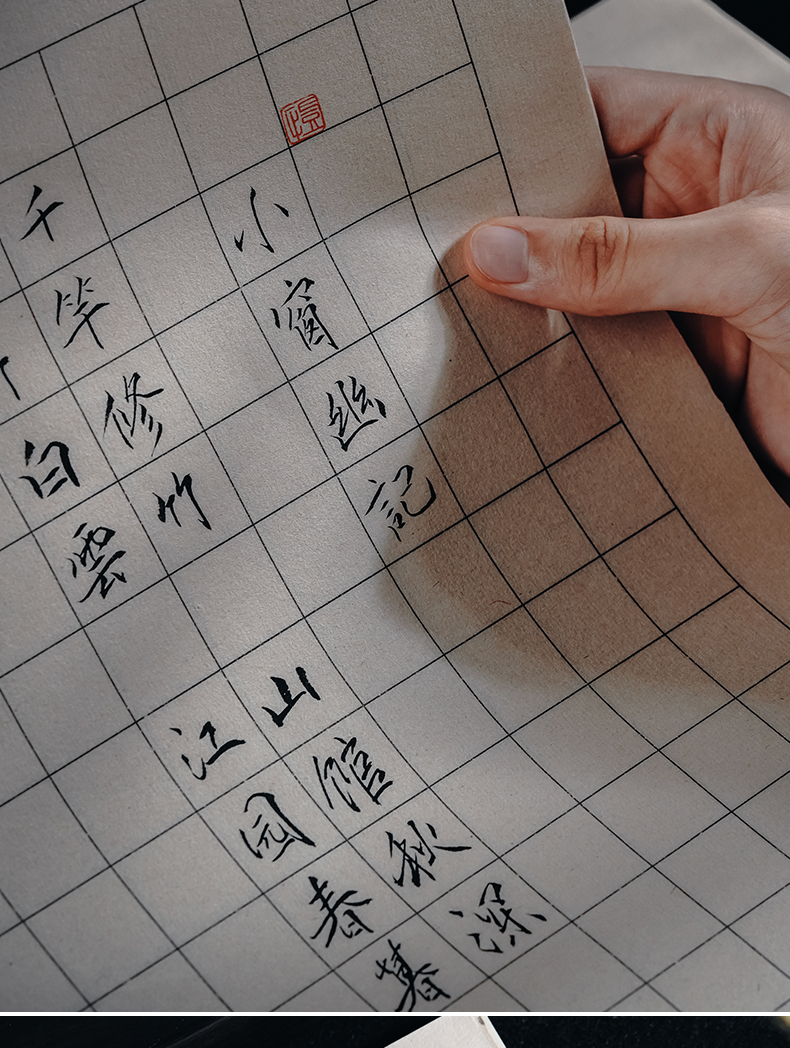 小窗幽記
千竿修竹 山館秋深
白雲 江园春暮